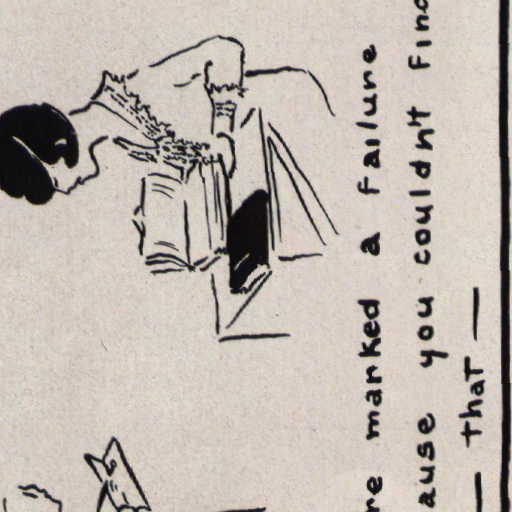 re marked a failure
ause you couldn't find
— that —